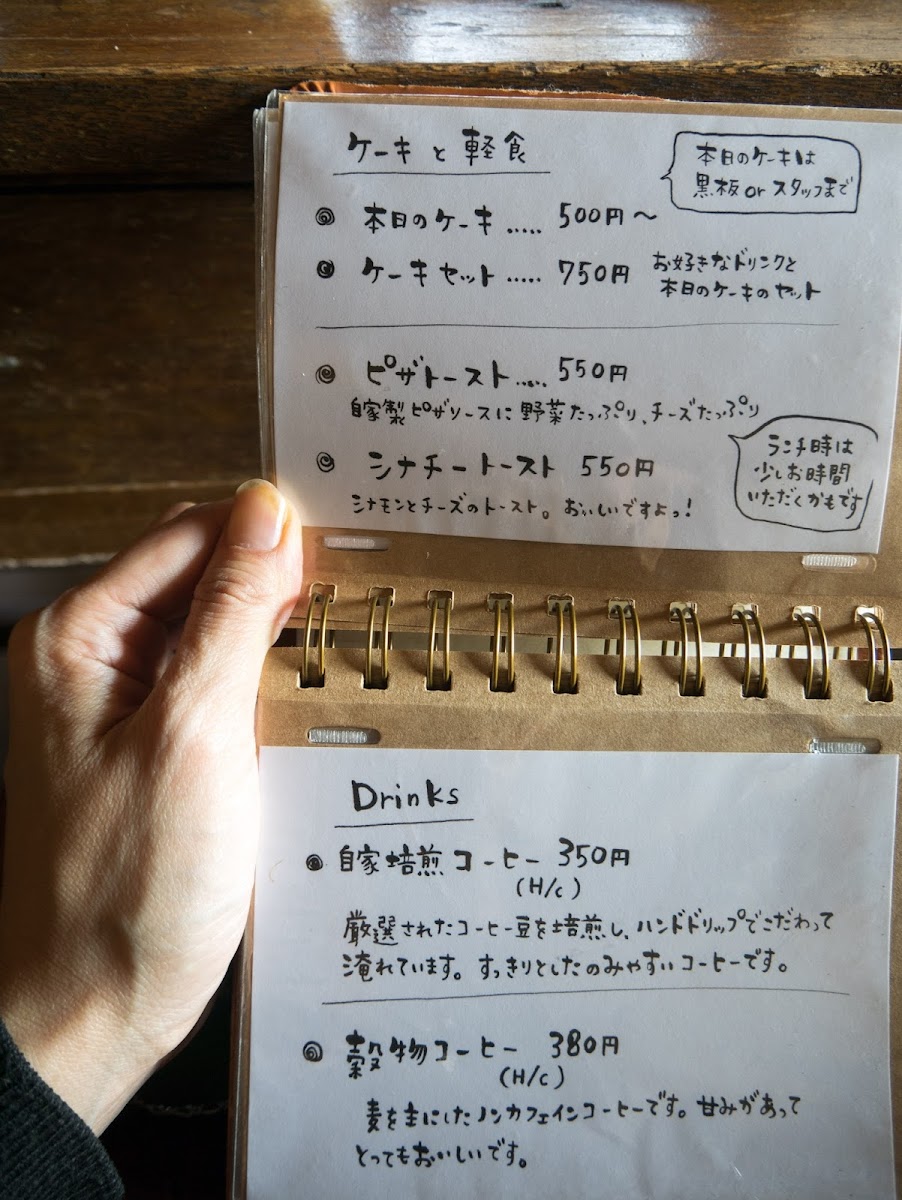 ケーキと軽食
本日のケーキは
黒板orスタッフまで
◎ 本日のケーキ ..... 500円〜
◎ ケーキセット ..... 750円
お好きなドリンクと
本日のケーキのセット
◎ ピザトースト ..... 550円
自家製ピザソースに野菜たっぷり、チーズたっぷり
◎ シナチートースト 550円
シナモンとチーズのトースト。おいしいですよっ!
ランチ時は
少しお時間
いただくかもです
Drinks
◎ 自家焙煎コーヒー 350円
(H/c)
厳選されたコーヒー豆を焙煎し、ハンドドリップでこだわって
淹れています。すっきりとしたのみやすいコーヒーです。
◎ 穀物コーヒー 380円
(H/c)
麦を主にしたノンカフェインコーヒーです。甘みがあって
とってもおいしいです。